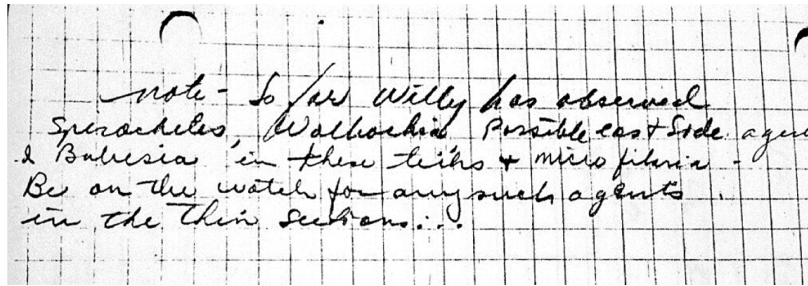 note - So far Willy has observed
Spirochetes, Wolbachia, Possible east side agen
& Babesia in these ticks & microfilaria -
Be on the watch for any such agents
in the thin sections...